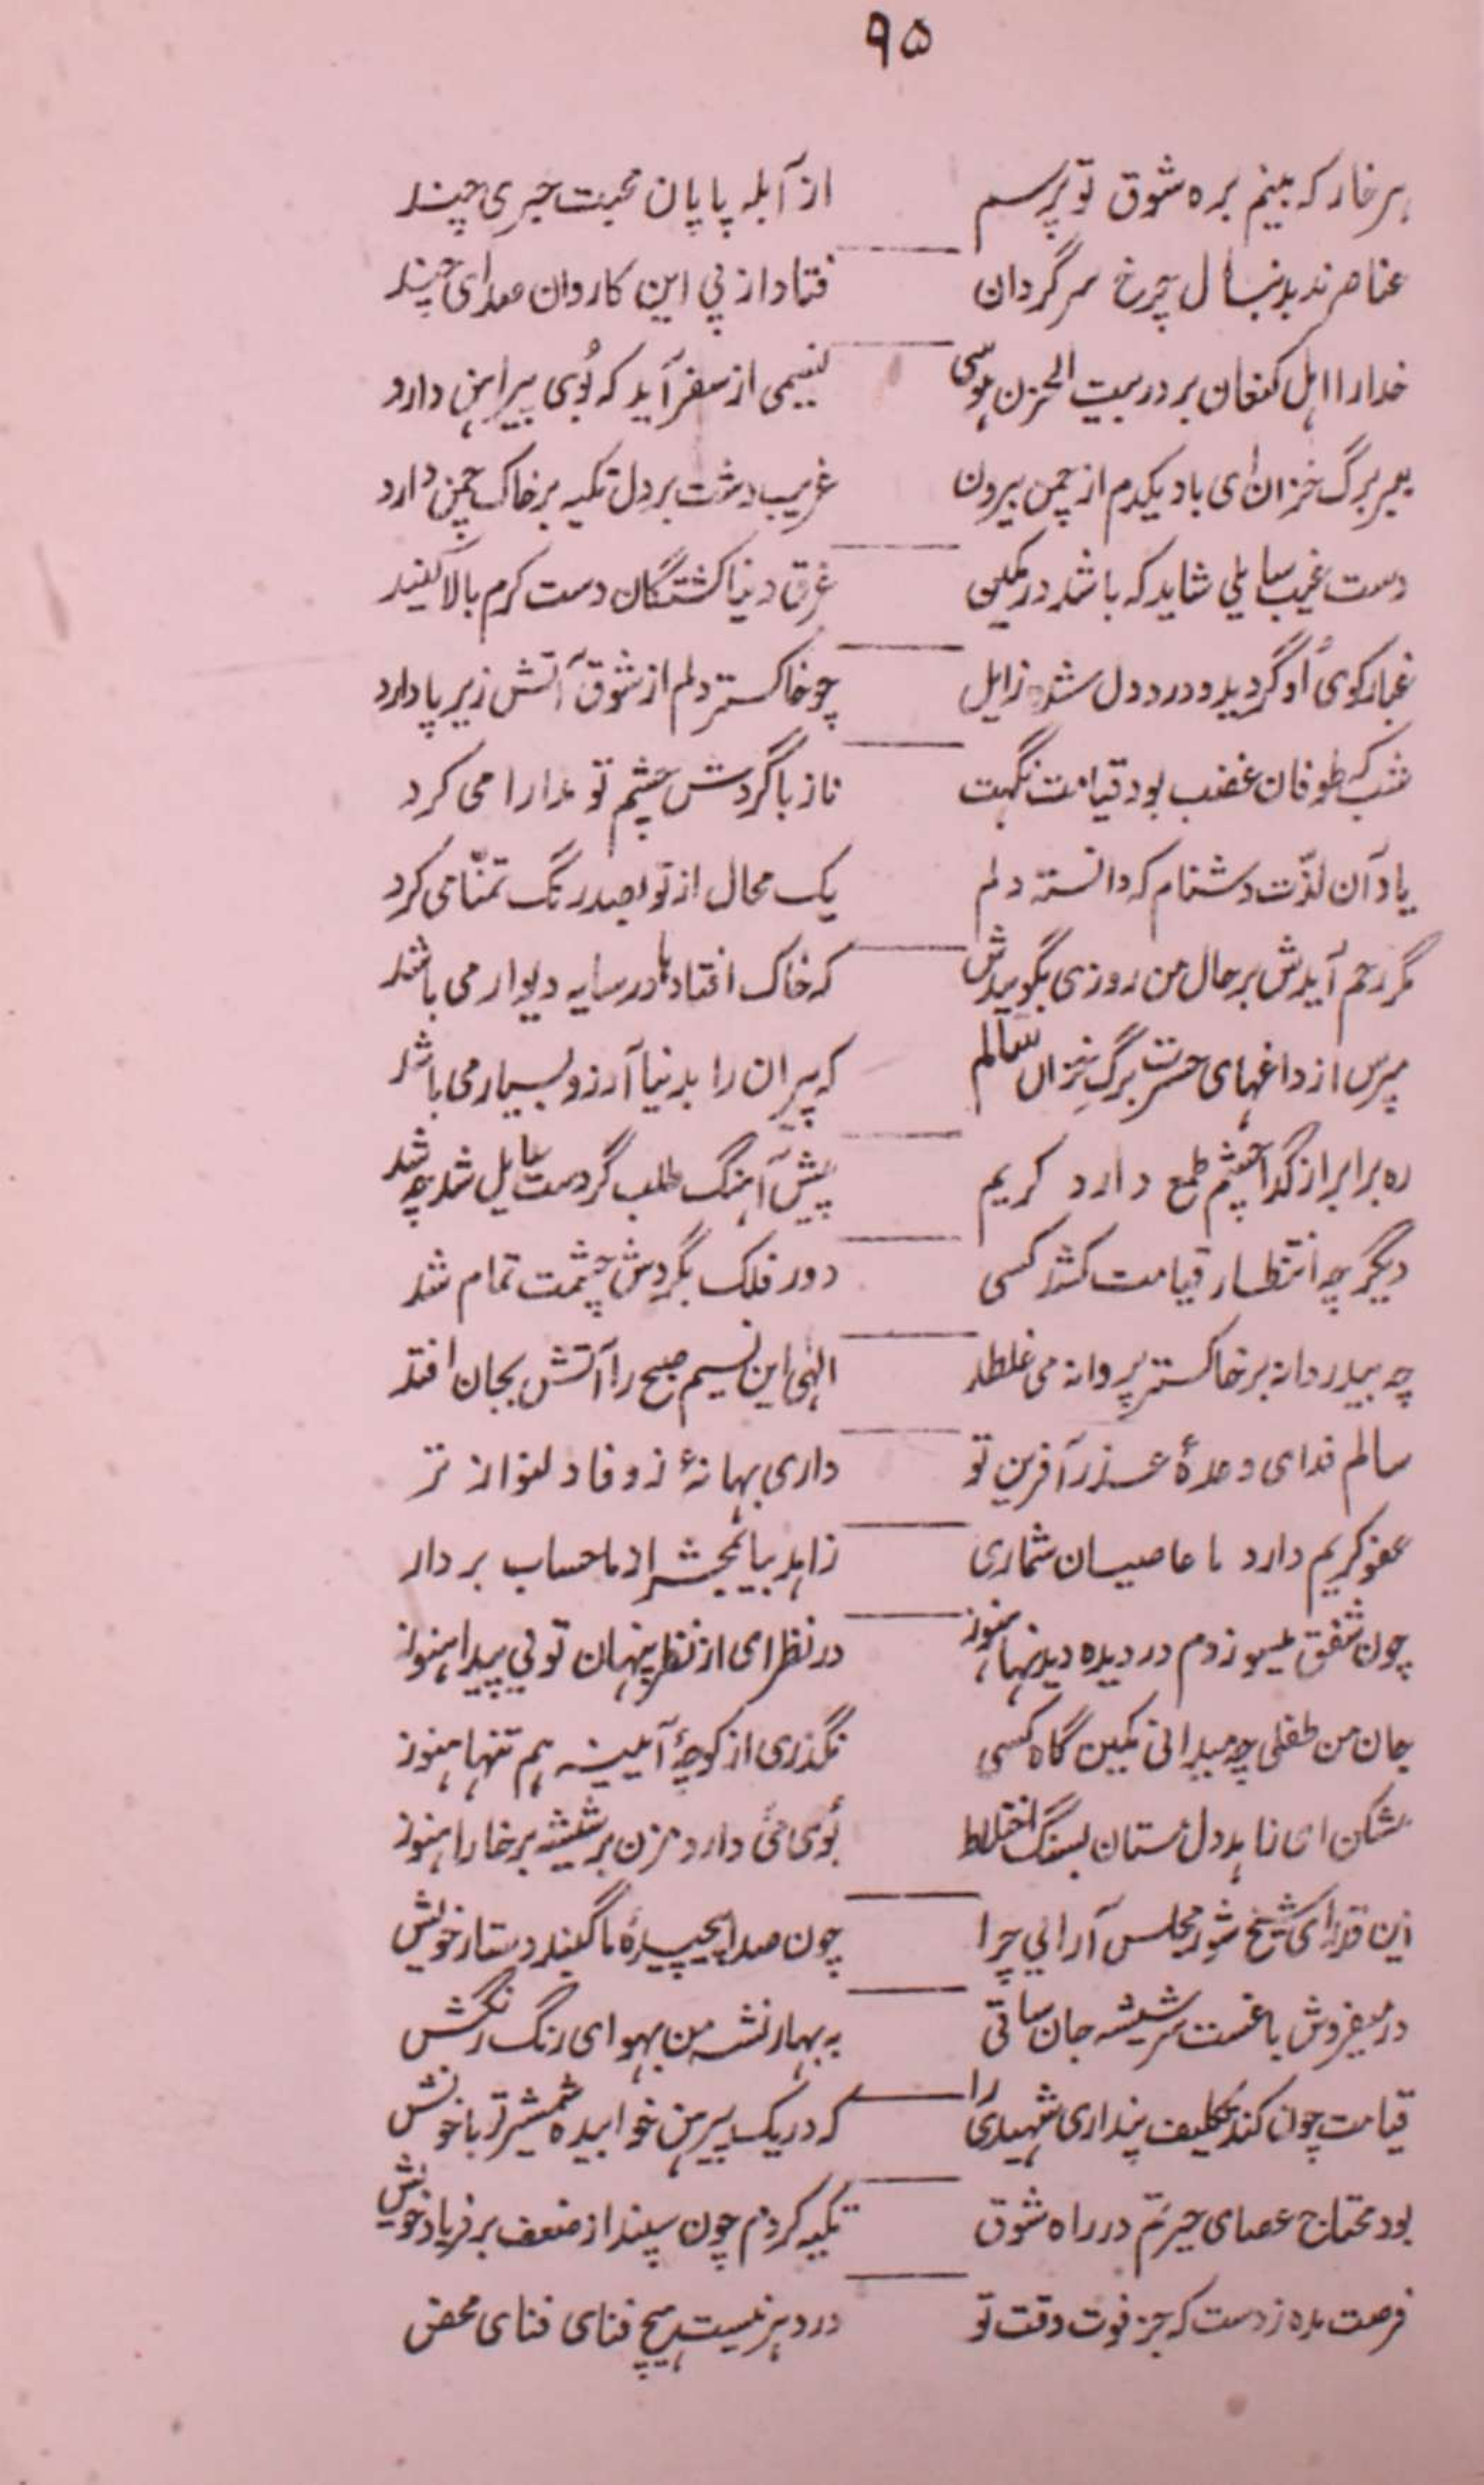 ۹۵
هر خار که بینم بره شوق تو پرسم از آبله پایان محبت خبری چند
عناصر ند بدنبال چرخ سرگردان فتاد از پی این کاروان صدای چند
خدارا اهل کنعان بر در بیت الحزن هوشی نسیمی از سفر آید که بُوی پیراهن دارد
ببر برگ خزان ای باد یکدم از چمن بیرون غریب دشت بر دل تکیه بر خاک چمن دارد
دست غیب سایلی شاید که باشد در کمین غرق دنیا کشتگان دست کرم بالا کنید
غبار کوی اُو گردید و درد دل نشد زایل چو خاکستر دلم از شوق آتش زیر پا دارد
شب که طوفان غضب بود قیامت نگهت ناز با گردش چشم تو مدارا می کرد
یاد آن لذّت دشنام که دانسته دلم یک محال از تو بصد رنگ تمنّا می کرد
مگر رحم آیدش بر حال من روزی بگوییدش که خاک افتاد ها در سایه دیوار می باشد
مپرس از داغهای حسرت برگِ خزان سالم که پیران را بدنیا آرزو بسیار می باشد
ره برابر از گدا چشم طمع دارد کریم پیش آهنگ طلب گر دست سایل شد چه شد
دیگر چه انتظار قیامت کشد کسی دور فلک بگردش چشمت تمام شد
چه بیدردانه بر خاکستر پروانه می غلطد الهٰی این نسیم صبح را آتش بجان افتد
سالم فدای وعدهٔ عذر آفرین تو داری بهانهٔ ز وفا دلنواز تر
عفو کریم دارد با عاصیان شماری زاهد بیا بمحشر از ما حساب بردار
چون شفق میسوزدم در دیده دیدنها هنوز در نظر ای از نظر پنهان تو بی پیدا هنوز
جان من طفلی چه میدانی کمین گاه کسی نگذری از کوچهٔ آیینه هم تنها هنوز
بشکن ای زاهد دل مستان بسنگ اختلاط بُوی می دارد مزن بر شیشه بر خارا هنوز
این قدر ای شیخ شور مجلس آرایی چرا چون صدا پیچیدهٔ ما گنبد دستار خویش
در میفروش باغست سر شیشه جان ساقی به بهار نشه من بهوای رنگ رنگش
قیامت چون کند تکلیف پنداری شهیدی را که در یک پیرهن خوابیده شمشیر تو با خونش
بود محتاج عصای حیرتم در راه شوق تکیه کردم چون سپند از ضعف بر فریاد خویش
فرصت مده ز دست که جز فوت وقت تو در دهر نیست هیچ فنای فنای محض